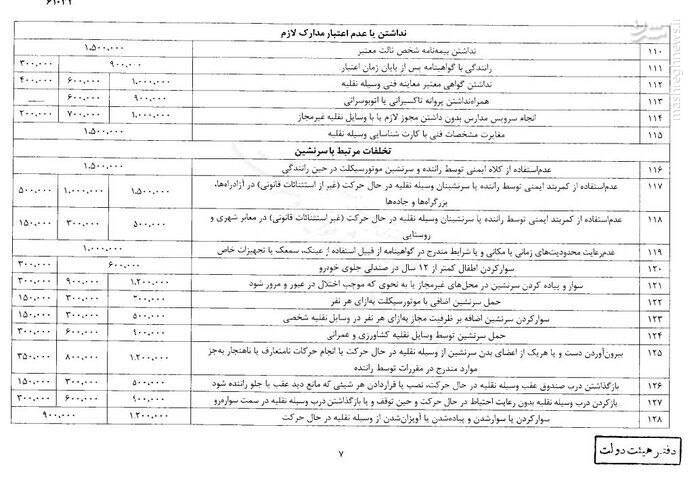 ۶۱۰۲۲
نداشتن یا عدم اعتبار مدارک لازم
۱۱۰ نداشتن بیمه‌نامه شخص ثالث معتبر ۱،۵۰۰،۰۰۰
۱۱۱ رانندگی با گواهینامه پس از پایان زمان اعتبار ۹۰۰،۰۰۰ ۳۰۰،۰۰۰
۱۱۲ نداشتن گواهی معتبر معاینه فنی وسیله نقلیه ۱،۰۰۰،۰۰۰ ۶۰۰،۰۰۰ ۴۰۰،۰۰۰
۱۱۳ همراه‌نداشتن پروانه تاکسیرانی یا اتوبوسرانی ۹۰۰،۰۰۰ ۶۰۰،۰۰۰ ـــــ
۱۱۴ انجام سرویس مدارس بدون داشتن مجوز لازم یا با وسایل نقلیه غیرمجاز ۱،۰۰۰،۰۰۰ ۷۰۰،۰۰۰ ۲۰۰،۰۰۰
۱۱۵ مغایرت مشخصات فنی با کارت شناسایی وسیله نقلیه ۱،۵۰۰،۰۰۰
تخلفات مرتبط با سرنشین
۱۱۶ عدم‌استفاده از کلاه ایمنی توسط راننده و سرنشین موتورسیکلت در حین رانندگی ۱،۵۰۰،۰۰۰
۱۱۷ عدم‌استفاده از کمربند ایمنی توسط راننده یا سرنشینان وسیله نقلیه در حال حرکت (غیر از استثنائات قانونی) در آزادراه‌ها، ۱،۵۰۰،۰۰۰ ۱،۰۰۰،۰۰۰ ۵۰۰،۰۰۰
بزرگراه‌ها و جاده‌ها
۱۱۸ عدم‌استفاده از کمربند ایمنی توسط راننده یا سرنشینان وسیله نقلیه در حال حرکت (غیر استثنائات قانونی) در معابر شهری و ۵۰۰،۰۰۰ ۳۰۰،۰۰۰ ۱۵۰،۰۰۰
روستایی
۱۱۹ عدم‌رعایت محدودیت‌های زمانی یا مکانی و یا شرایط مندرج در گواهینامه از قبیل استفاده از عینک، سمعک یا تجهیزات خاص ۱،۰۰۰،۰۰۰
۱۲۰ سوارکردن اطفال کمتر از ۱۲ سال در صندلی جلوی خودرو ۶۰۰،۰۰۰ ۳۰۰،۰۰۰
۱۲۱ سوار و پیاده کردن سرنشین در محل‌های غیرمجاز یا به نحوی که موجب اختلال در عبور و مرور شود ۱،۲۰۰،۰۰۰ ۹۰۰،۰۰۰ ۳۰۰،۰۰۰
۱۲۲ حمل سرنشین اضافی با موتورسیکلت به‌ازای هر نفر ۵۰۰،۰۰۰ ۳۰۰،۰۰۰ ۱۵۰،۰۰۰
۱۲۳ سوارکردن سرنشین اضافه بر ظرفیت مجاز به‌ازای هر نفر در وسایل نقلیه شخصی ۵۰۰،۰۰۰ ۳۰۰،۰۰۰ ۱۵۰،۰۰۰
۱۲۴ حمل سرنشین توسط وسایل نقلیه کشاورزی و عمرانی ۹۰۰،۰۰۰ ۶۰۰،۰۰۰ ۳۰۰،۰۰۰
۱۲۵ بیرون‌آوردن دست و یا هریک از اعضای بدن سرنشین از وسیله نقلیه در حال حرکت یا انجام حرکات نامتعارف یا ناهنجار به‌جز ۱،۲۰۰،۰۰۰ ۸۰۰،۰۰۰ ۳۵۰،۰۰۰
موارد مندرج در مقررات توسط راننده
۱۲۶ بازگذاشتن درب صندوق عقب وسیله نقلیه در حال حرکت، نصب یا قراردادن هر شیئی که مانع دید عقب یا جلو راننده شود ۵۰۰،۰۰۰ ۳۰۰،۰۰۰ ۱۵۰،۰۰۰
۱۲۷ بازکردن درب وسیله نقلیه بدون رعایت احتیاط در حال حرکت و حین توقف و یا بازگذاشتن درب وسیله نقلیه در سمت سواره‌رو ۹۰۰،۰۰۰ ۶۰۰،۰۰۰ ۳۰۰،۰۰۰
۱۲۸ سوارکردن یا سوارشدن و پیاده‌شدن یا آویزان‌شدن از وسیله نقلیه در حال حرکت ۱،۲۰۰،۰۰۰ ۹۰۰،۰۰۰
۷
دفتر هیئت دولت
mashreghnews.ir